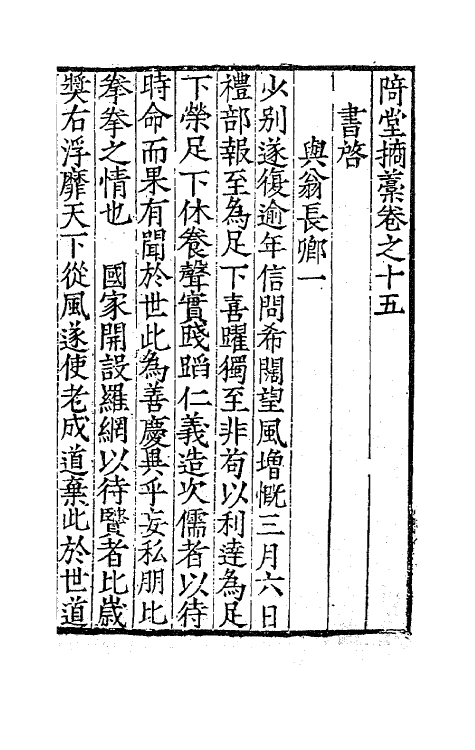 陭堂摘藁卷之十五
書啓
與翁長卿一
少别遂復逾年信問希闊望風增慨三月六日
禮部報至為足下喜曜獨至非苟以利達為足
下榮足下休養聲實踐蹈仁義造次儒者以待
時命而果有聞於世此為善慶異乎妄私朋比
拳拳之情也 國家開設羅網以待賢者比歲
奬右浮靡天下從風遂使老成道棄此於世道